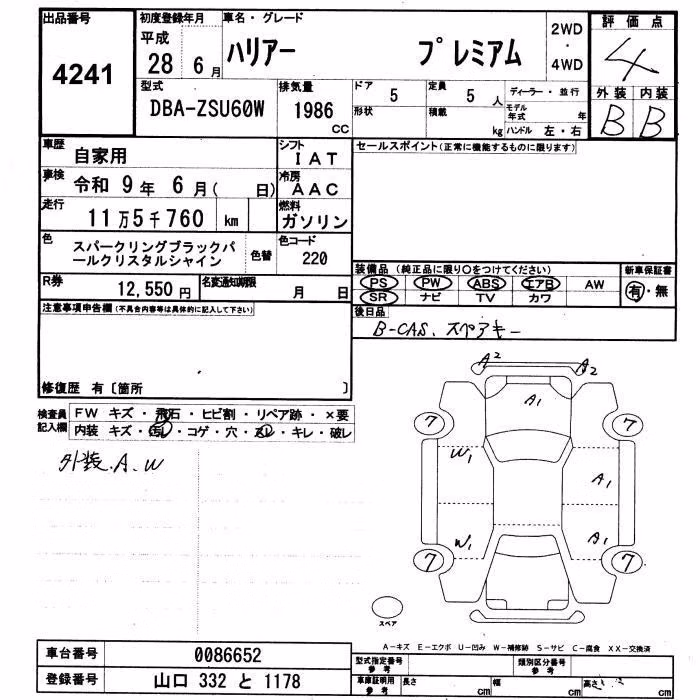 出品番号
4241
初度登録年月
平成
28 6 月
車名・グレード
ハリアー プレミアム
2WD
・
4WD
評価点
4
外装 内装
B B
型式
DBA-ZSU60W
排気量
1986
CC
ドア
5
定員
5 人
ディーラー・並行
形状
積載
kg
モデル年式 年
ハンドル 左・右
車歴
自家用
シフト
IAT
車検
令和 9 年 6 月( 日)
冷房
AAC
走行
11 万 5 千 760 km
燃料
ガソリン
色
スパークリングブラックパ
ールクリスタルシャイン
色替
色コード
220
R券
12,550 円
名変通知期限
月 日
セールスポイント(正常に機能するものに限ります)
装備品 (純正品に限り○をつけてください)
PS PW ABS エアB AW
SR ナビ TV カワ
新車保証書
有・無
後日品
B-CAS、スペアキー
注意事項申告欄(不具合内容等は具体的に記入して下さい)
修復歴 有〔箇所 〕
検査員
記入欄
FW キズ・飛石・ヒビ割・リペア跡・×要
内装 キズ・汚レ・コゲ・穴・スレ・キレ・破レ
外装、A、W
A2 A2
A1
7 7
W1
A1
W1
A1
7 7
スペア
A-キズ E-エクボ U-凹み W-補修跡 S-サビ C-腐食 XX-交換済
車台番号
0086652
登録番号
山口 332 と 1178
型式指定番号
参考
類別区分番号
参考
車庫証明用
参考
長さ cm 幅 cm 高さ cm